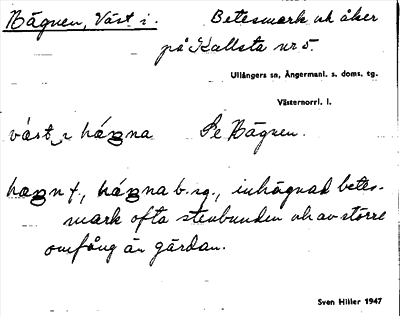 Bägnen, Väst i. Betesmark och åker
på Kallsta nr 5.
Ullångers sn, Ångermanl. s. doms. tg.
Västernorrl. l.
våst i hágna Se Bägnen.
hægn f., hágna b. sg., inhägnad betes-
mark ofta stenbunden och av större
omfång än gärdan.
Sven Hiller 1947